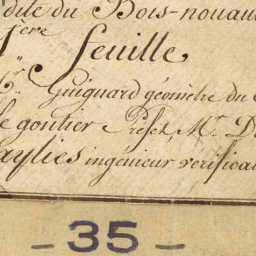 dite du Bois-nouau
1ère feuille,
Mr. Guignard géomètre du
le goutier Préfet, Mr. D
aylies ingénieur verifica
- 35 -